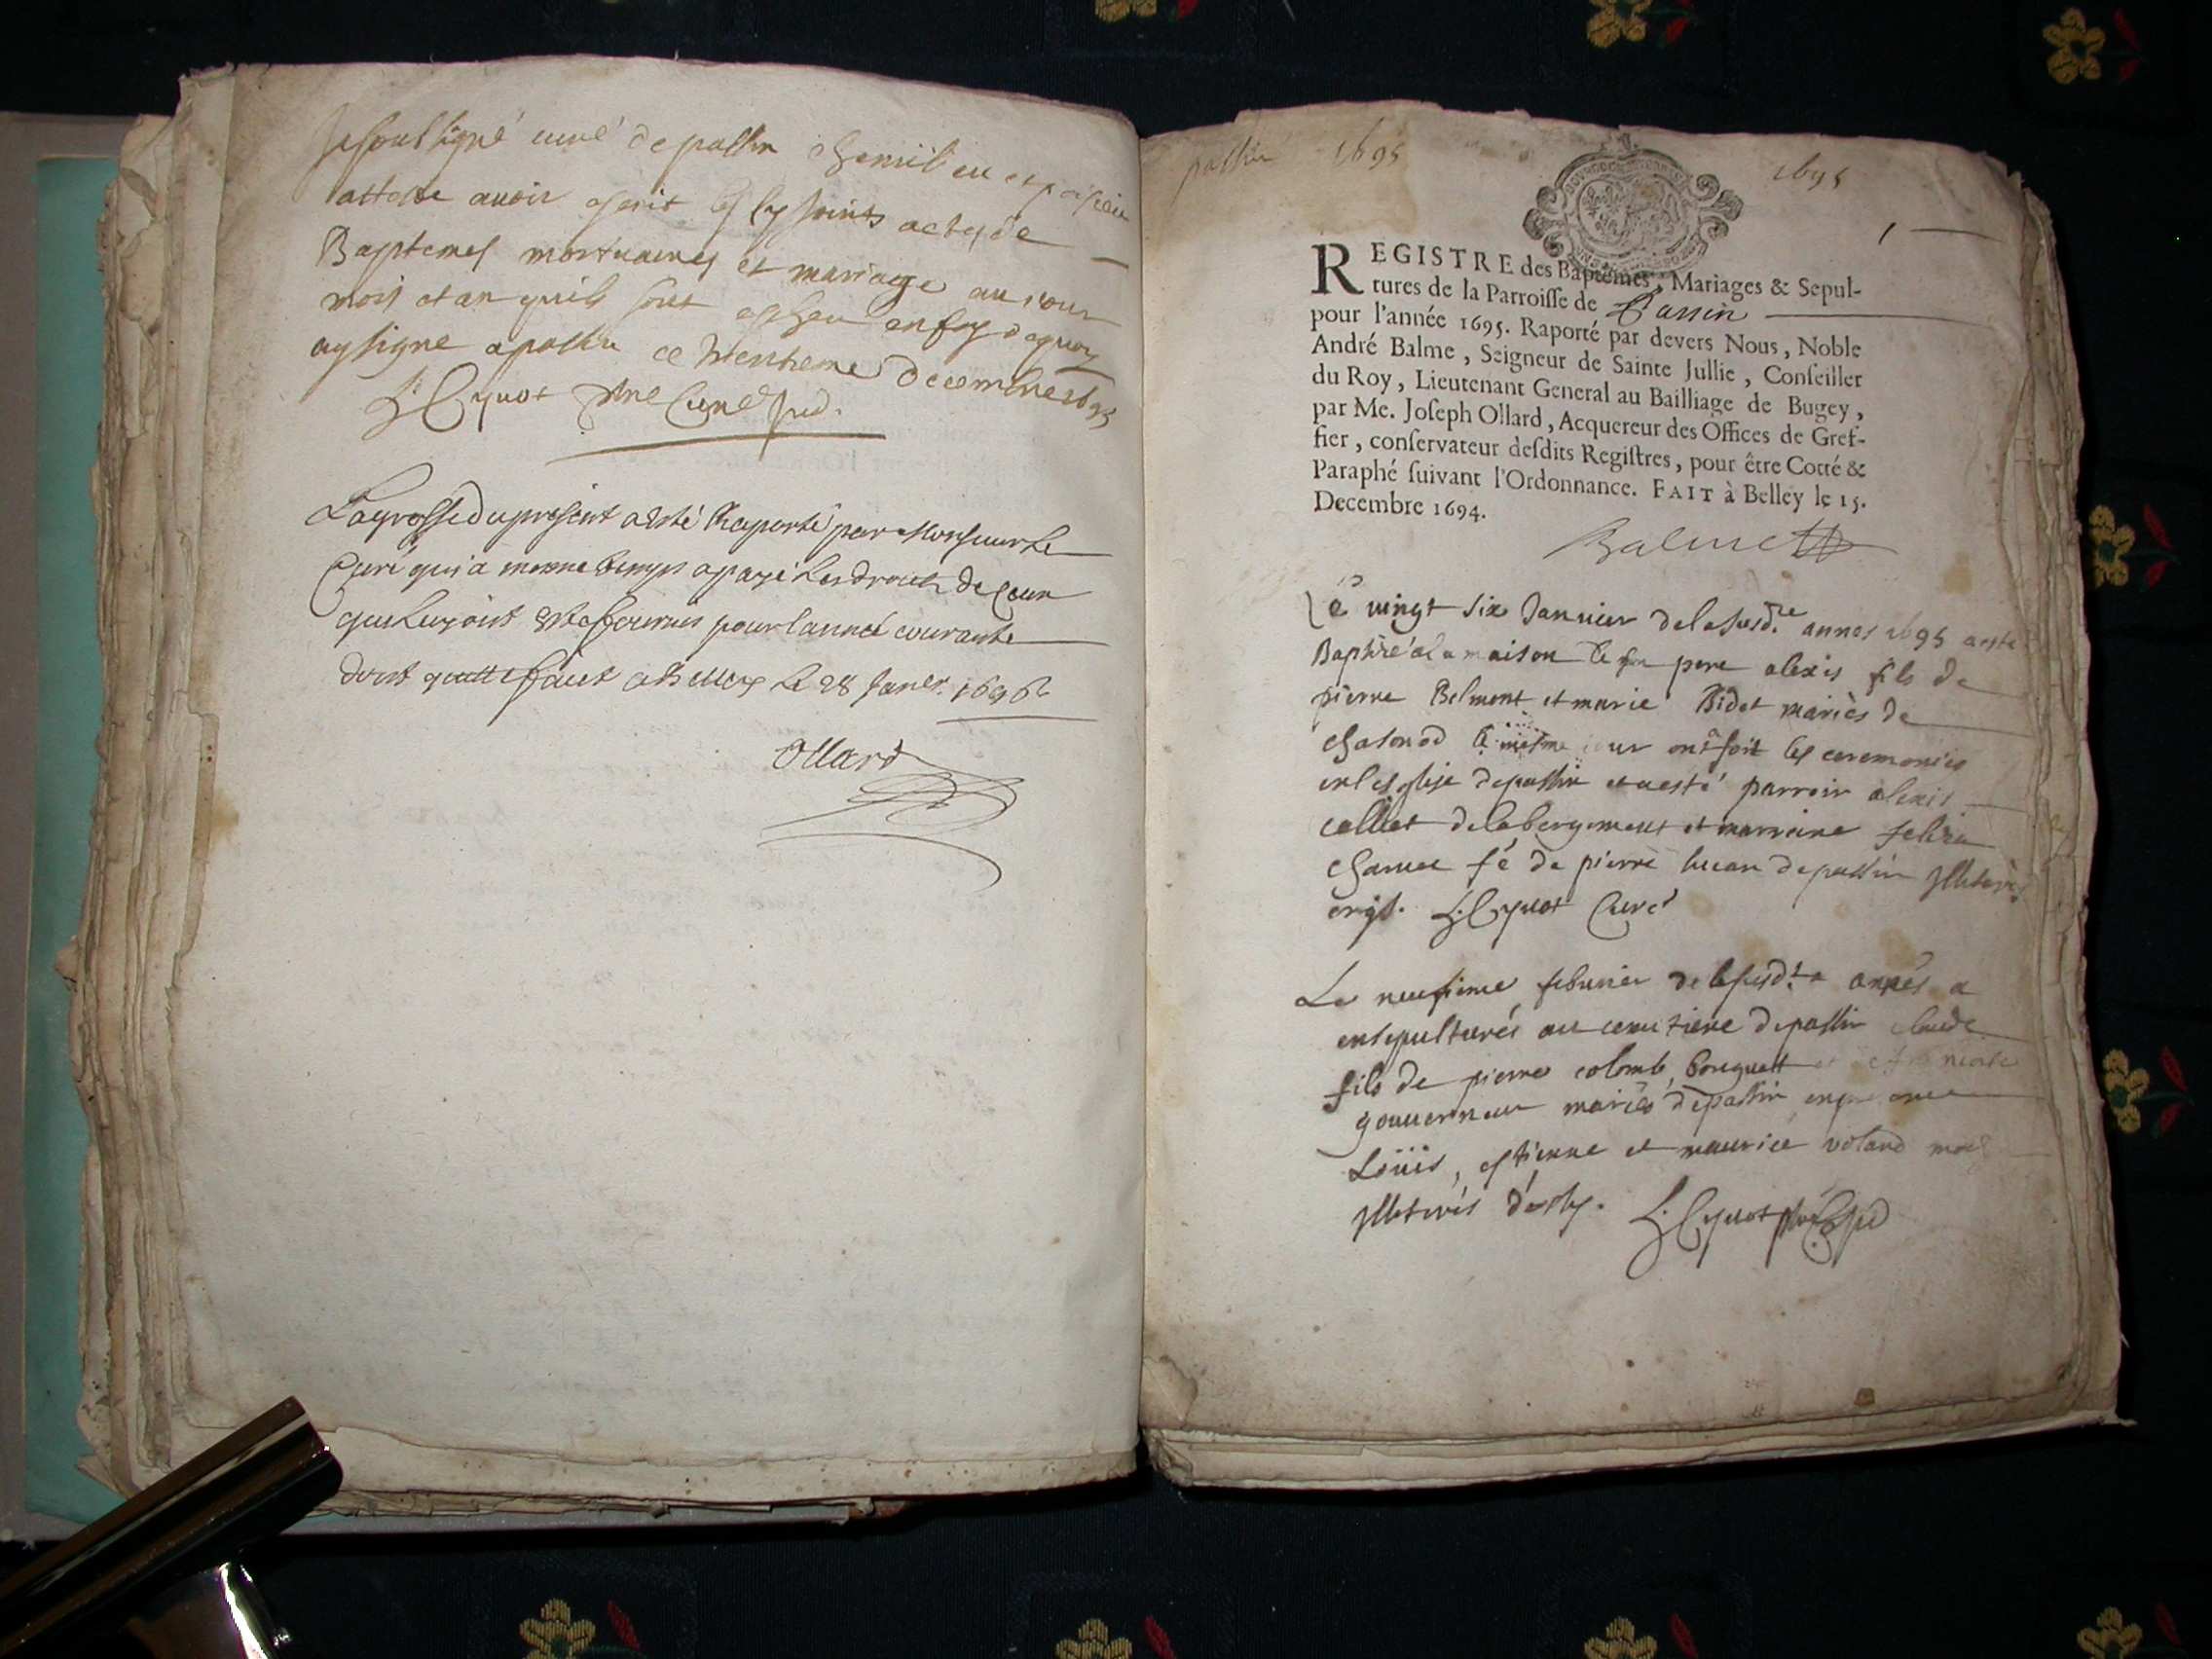 Je soubsigné curé de passin Chemilieu et poisieu
atteste avoir escrit les susjoints actes de
Baptemes mortuaires et mariage au jour
mois et an quils sont escheu en foy de quoy
ay signé a passin ce trentieme decembre 1695
Cyuot Curé sud.
La grosse du present a esté Raporté par Monsieur Le
Curé qui a mesme temps a payé Les droicts de Ceux
que Luy ont esté fournis pour lannee courante
dont quitte faict a Belley Le 28 Janer. 1696
Ollard
passin 1695 1695
1
REGISTRE des Baptêmes, Mariages & Sepul-
tures de la Parroisse de Passin
pour l'année 1695. Raporté par devers Nous, Noble
André Balme, Seigneur de Sainte Jullie, Conseiller
du Roy, Lieutenant General au Bailliage de Bugey,
par Me. Joseph Ollard, Acquereur des Offices de Gref-
fier, conservateur desdits Registres, pour être Cotté &
Paraphé suivant l'Ordonnance. FAIT à Belley le 15.
Decembre 1694.
Balme
Le vingt six Janvier de la susd.te annes 1695 a esté
Baptisé a la maison de son pere alexis fils de
pierre Belmont et marie Bidat mariés de
Chasonod le mesme jour ont fait les ceremonies
en lesglise de passin et a esté parrein alexis
colliet de labergement et marraine
de pierre de passin Illiterés
Cyuot Curé
Le neufieme febvrier de la susd.te annés a
ensepulturés au cemitiere de passin claude
fils de pierre colomb bouquett et
gouverneur mariés de passin en
Loüis, estienne et maurice voland
Illiterés Cyuot